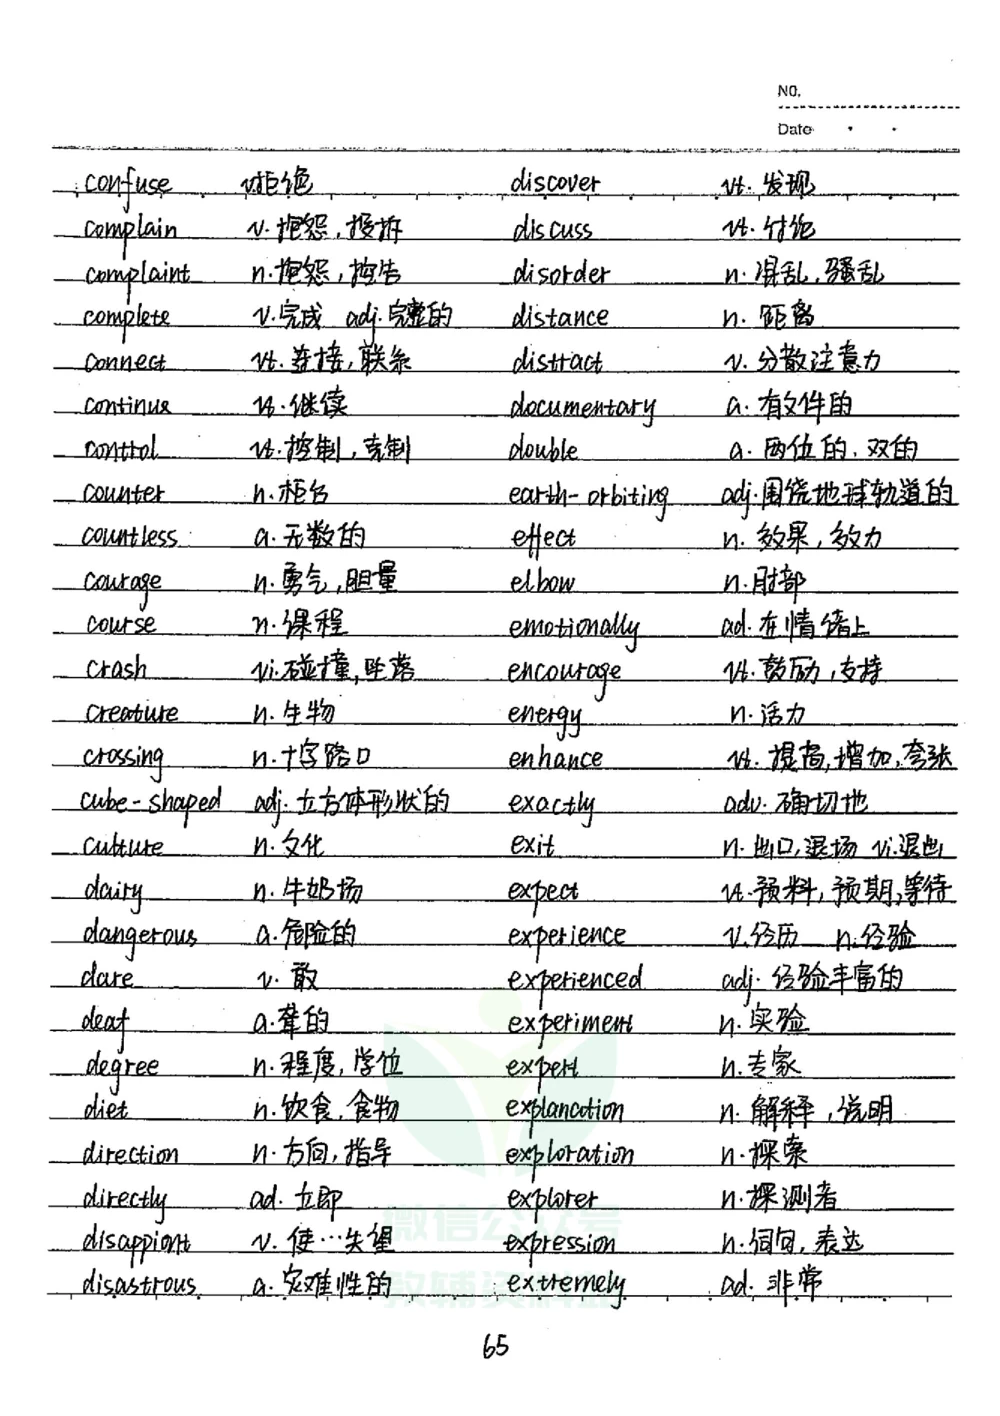 NO.
Date
confuse v.拒绝 discover vt. 发现
complain v. 抱怨, 投拆 discuss vt. 讨论
complaint n. 抱怨, 控告 disorder n. 混乱, 骚乱
complete v. 完成 adj. 完整的 distance n. 距离
connect vt. 连接, 联系 distract v. 分散注意力
continue vt. 继续 documentary a. 有文件的
control vt. 控制, 克制 double a. 两位的, 双的
counter n. 柜台 earth-orbiting adj. 围绕地球轨道的
countless a. 无数的 effect n. 效果, 效力
courage n. 勇气, 胆量 elbow n. 肘部
course n. 课程 emotionally ad. 在情绪上
crash vi. 碰撞, 坠落 encourage vt. 鼓励, 支持
creature n. 生物 energy n. 活力
crossing n. 十字路口 enhance vt. 提高, 增加, 夸张
cube-shaped adj. 立方体形状的 exactly adv. 确切地
culture n. 文化 exit n. 出口, 退场 vi. 退出
dairy n. 牛奶场 expect vt. 预料, 预期, 等待
dangerous a. 危险的 experience v. 经历 n. 经验
dare v. 敢 experienced adj. 经验丰富的
deaf a. 聋的 experiment n. 实验
degree n. 程度, 学位 expert n. 专家
diet n. 饮食, 食物 explanation n. 解释, 说明
direction n. 方向, 指导 exploration n. 探索
directly ad. 立即 explorer n. 探测者
disappiont v. 使…失望 expression n. 词句, 表达
disastrous a. 灾难性的 extremely ad. 非常
微信公众号
教辅资料站
65